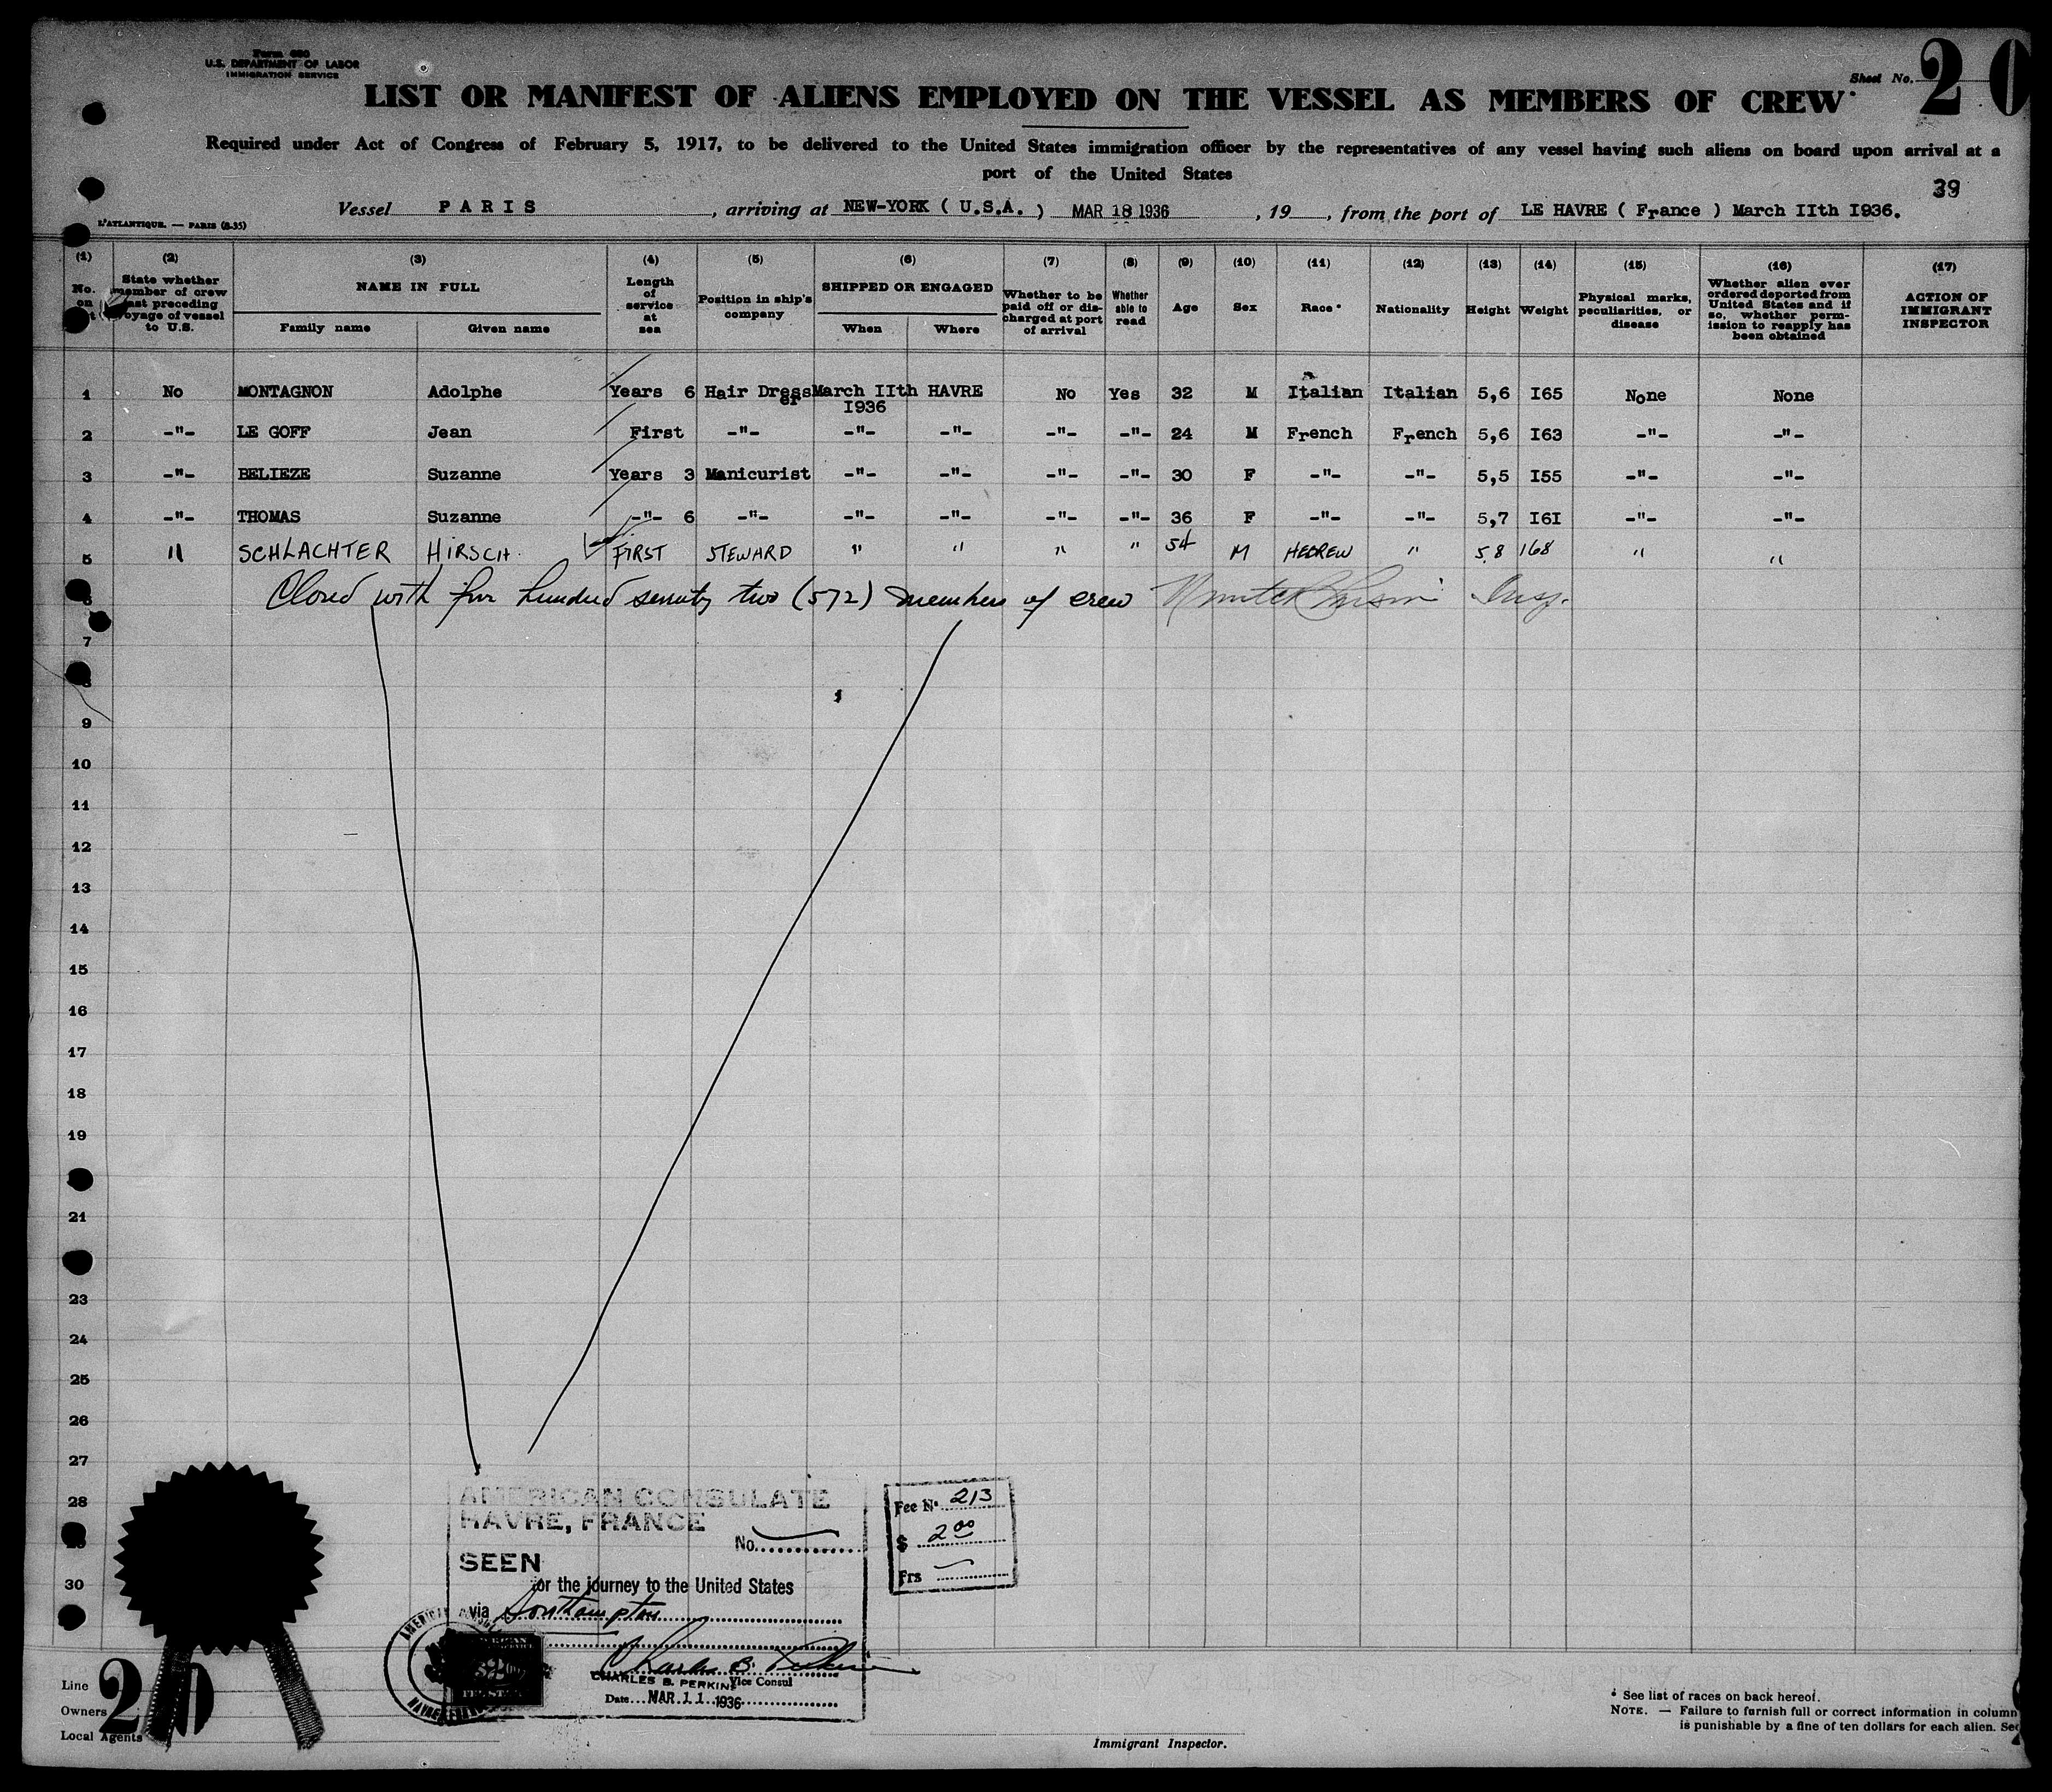 Form 680
U.S. DEPARTMENT OF LABOR
IMMIGRATION SERVICE
Sheet No. 20
LIST OR MANIFEST OF ALIENS EMPLOYED ON THE VESSEL AS MEMBERS OF CREW
Required under Act of Congress of February 5, 1917, to be delivered to the United States immigration officer by the representatives of any vessel having such aliens on board upon arrival at a
port of the United States
39
Vessel PARIS, arriving at NEW-YORK ( U.S.A. ) MAR 18 1936, 19, from the port of LE HAVRE ( France ) March IIth I936.
L'ATLANTIQUE. — PARIS (8-35)
(1) (2) (3) (4) (5) (6) (7) (8) (9) (10) (11) (12) (13) (14) (15) (16) (17)
No. on
State whether member of crew last preceding voyage of vessel to U.S.
NAME IN FULL
Family name
Given name
Length of service at sea
Position in ship's company
SHIPPED OR ENGAGED
When
Where
Whether to be paid off or discharged at port of arrival
Whether able to read
Age
Sex
Race *
Nationality
Height
Weight
Physical marks, peculiarities, or disease
Whether alien ever ordered deported from United States and if so, whether permission to reapply has been obtained
ACTION OF IMMIGRANT INSPECTOR
1 No MONTAGNON Adolphe Years 6 Hair Dresser March IIth I936 HAVRE No Yes 32 M Italian Italian 5,6 I65 None None
2 -"- LE GOFF Jean First -"- -"- -"- -"- -"- 24 M French French 5,6 I63 -"- -"-
3 -"- BELIEZE Suzanne Years 3 Manicurist -"- -"- -"- -"- 30 F -"- -"- 5,5 I55 -"- -"-
4 -"- THOMAS Suzanne -"- 6 -"- -"- -"- -"- -"- 36 F -"- -"- 5,7 I6I -"- -"-
5 " SCHLACHTER HIRSCH FIRST STEWARD " " " " 54 M HEBREW " 5.8 168 " "
Closed with five hundred seventy two (572) members of crew Insp.
7
9
10
11
12
13
14
15
16
17
18
19
21
23
24
25
26
27
28
30
AMERICAN CONSULATE
HAVRE, FRANCE
No.
SEEN
for the journey to the United States
via Southampton
Charles B. Perkins
CHARLES B. PERKINS Vice Consul
Date MAR 11 1936
Fee No. 213
$ 2 00
Frs
Line
Owners
Local Agents
20
Immigrant Inspector.
* See list of races on back hereof.
NOTE. — Failure to furnish full or correct information in column
is punishable by a fine of ten dollars for each alien.